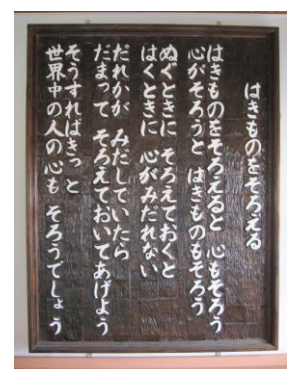 はきものをそろえる
はきものをそろえると 心もそろう
心がそろうと はきものもそろう
ぬぐときに そろえておくと
はくときに 心がみだれない
だれかが みだしていたら
だまって そろえておいてあげよう
そうすればきっと
世界中の人の心も そろうでしょう